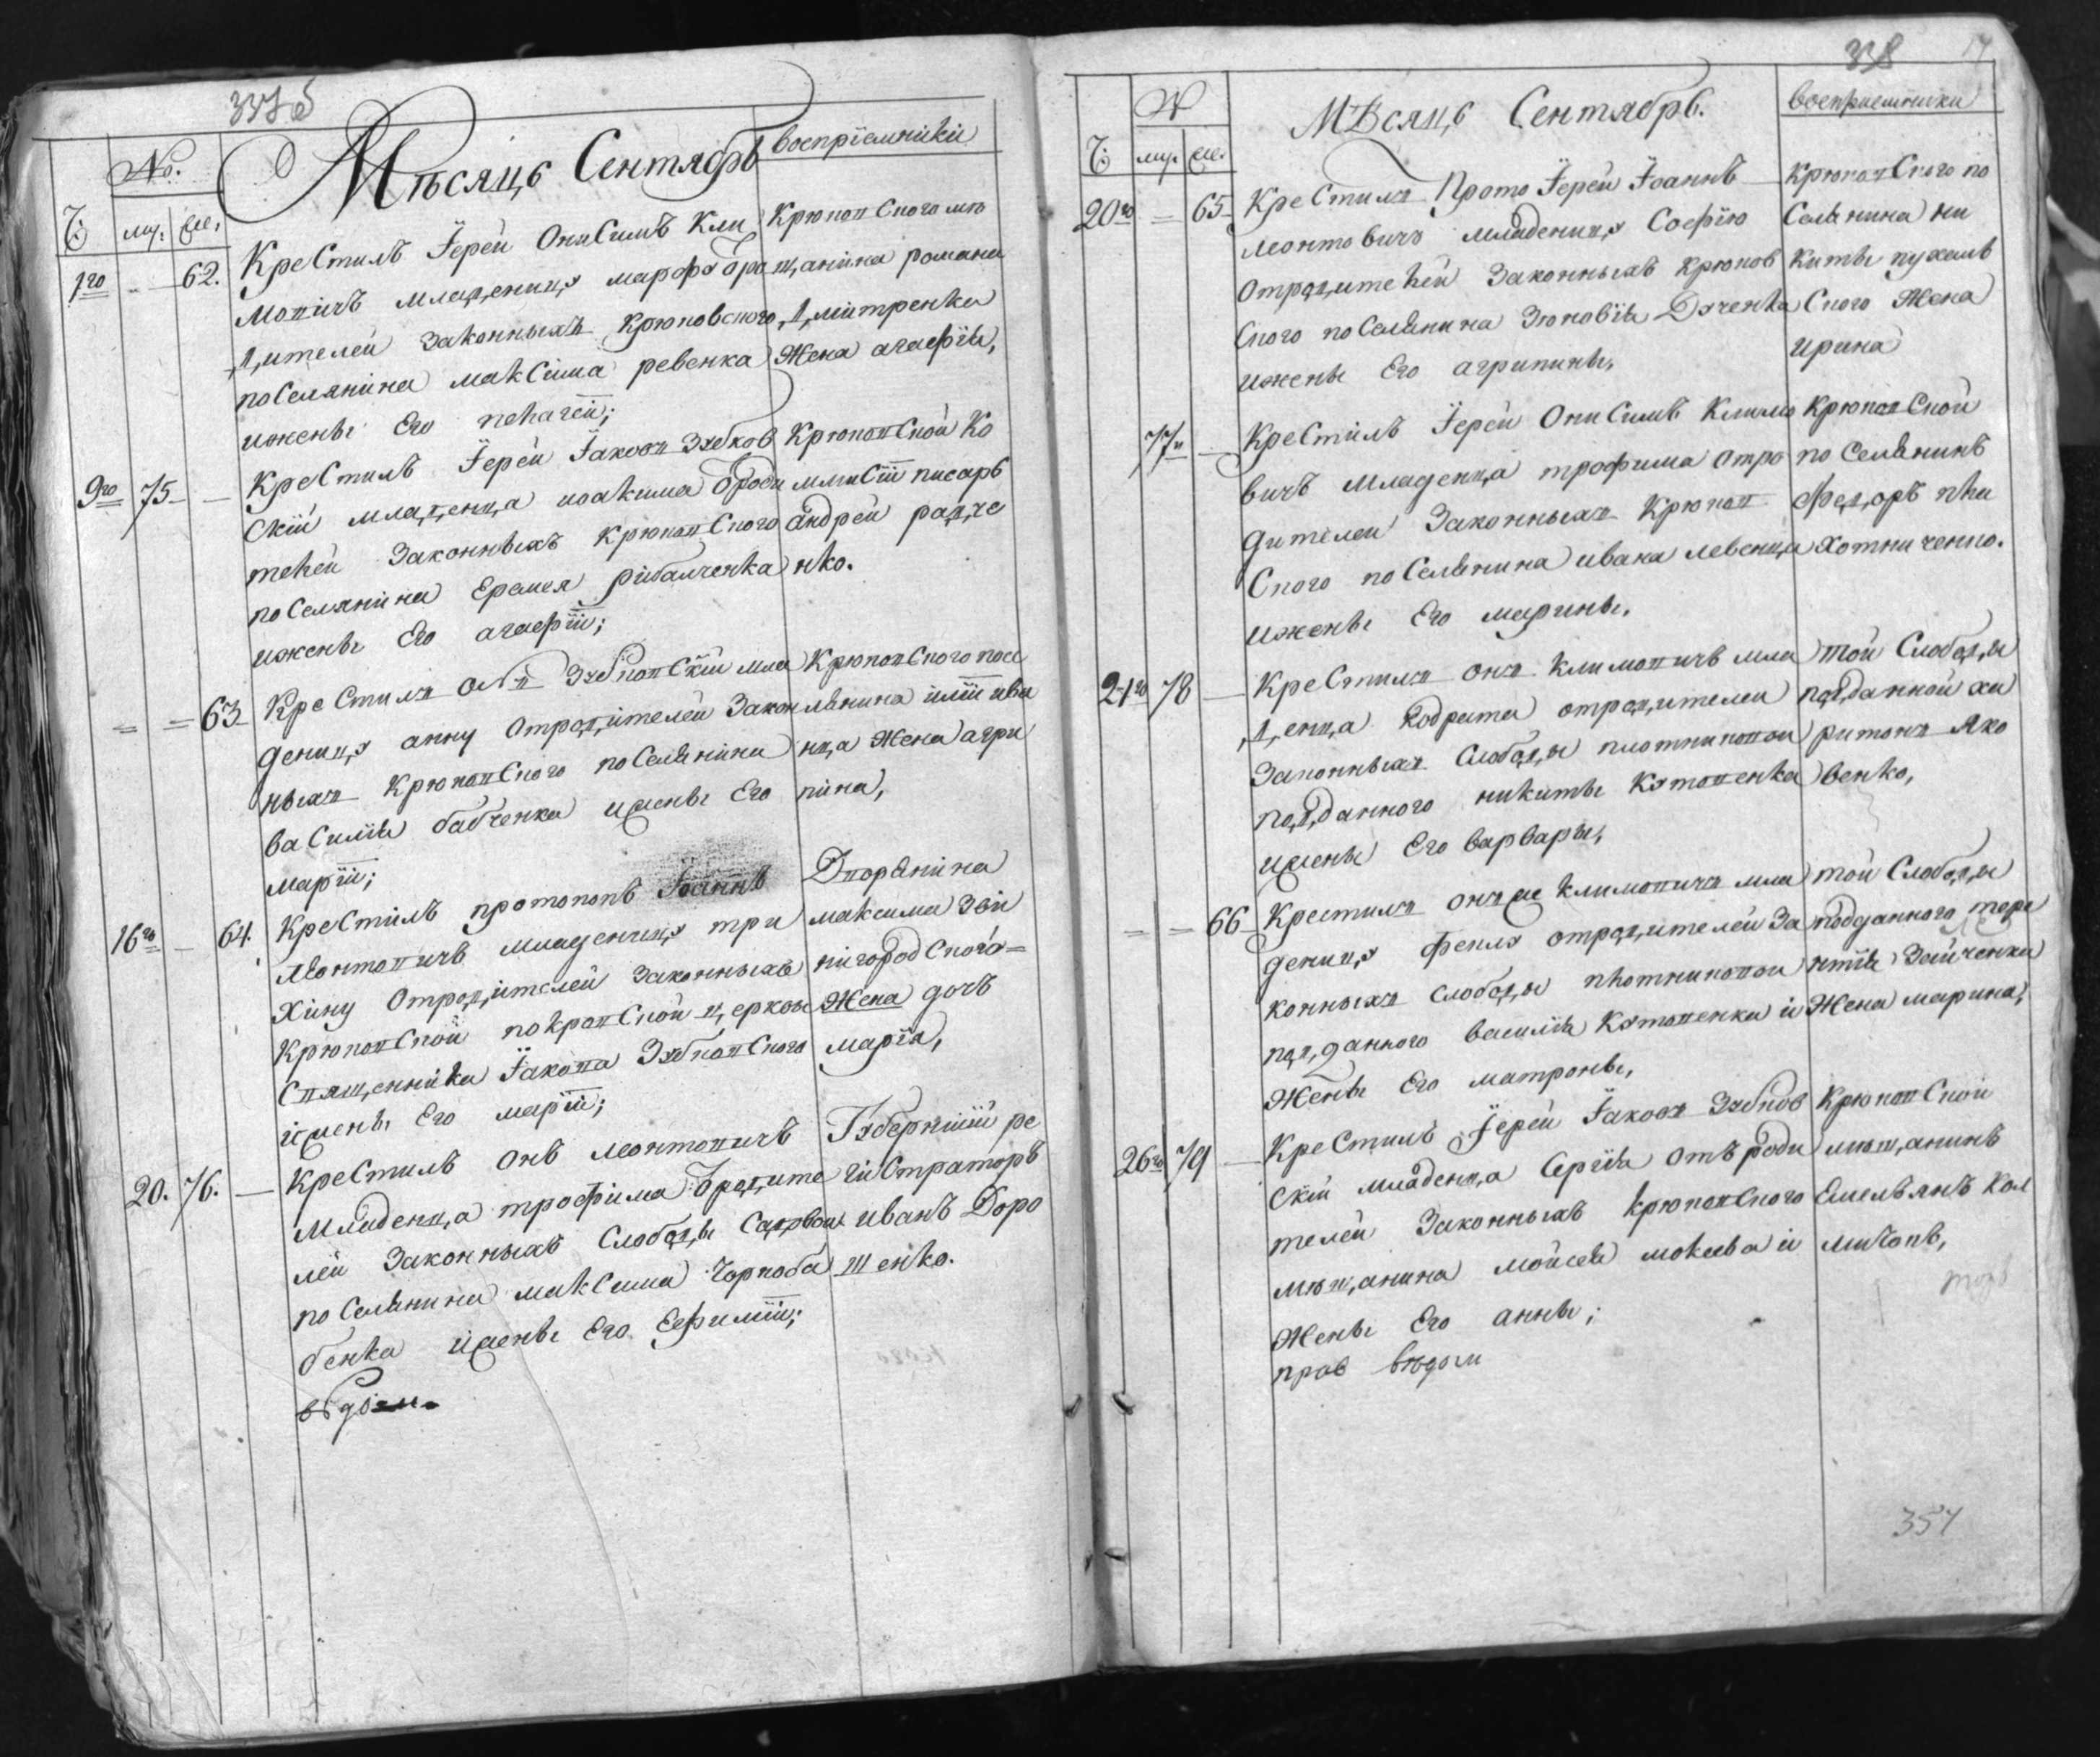 337 б
No.
Мѣсяцъ Сентябрь
воспріемники
Ч: му: же:
1го - - 62. Крестилъ Іерей Онисимъ Кли
мовичъ младеницу марфу ѿ ро
дителей законныхъ крюковского
поселянина максима ревенка
ижены Его пелагеи;
Крюковского мѣ
щанина романа
дмитренка
жена агафія,
9го 75 - Крестилъ Іерей Іаковъ Зубков
скій младенца иоакима ѿ роди
телей законныхъ крюковского
поселянина Еремея рибалченка
ижены Его агафіи;
Крюковской ко
мисіи писарь
андрей радче
нко.
= = 63 Крестилъ онъ Зубковскій мла
деницу анну отродителей закон
ныхъ крюковского поселянина
василия бабченка ижены Его
маріи;
Крюковского посе
лянина иліи ива
нца жена агри
пина,
16го - 64. Крестилъ протопопъ Іоаннъ
Леонтовичъ младеницу три
хину отродителей законныхъ
крюковской покровской церкви
священика Іакова Зубковского
ижены Его маріи;
Дворянина
максима зви
нигородского=
жена дочь
марія,
20. 76. - Крестилъ онъ леонтовичъ
младенца трофима ѿ родите
лей законныхъ слободы садовой
поселянина максима Чорноба
бенка ижены Его Ефиміи;
Губерніи ре
гистраторъ
иванъ Доро
шенко.
338
17
No
Мѣсяцъ Сентябрь.
воспріемники
Ч: му: же:
20го = 65 Крестилъ Протоіерей Іоаннъ
леонтовичъ младеницу Софію
отродителей законныхъ крюков
ского поселянина Зиновія Дяченка
ижены Его агрипины,
крюковского по
селянина ни
киты пухаль
ского жена
ирина
77 - Крестилъ Іерей Онисимъ Климо
вичъ младенца трофима отро
дителей законныхъ крюков
ского поселянина ивана левенца
ижены Его марины,
крюковской
поселянинъ
федоръ пла
хотниченко.
21го 78 - Крестилъ онъ климовичъ мла
денца кодрата отродителей
законныхъ слободы плотниковой
подданного никиты Кутовенка
ижены Его варвары,
той слободы
подданной ха
ритонъ яко
венко,
= = 66 Крестилъ онъ же климовичъ мла
деницу феклу отродителей за
конныхъ слободы плотниковой
подданного василія Кутовенка и
жены Его матроны,
той слободы
подданного тере
нтія Зайченка
жена марина,
26го 79 - Крестилъ Іерей Іаковъ Зубков
скій младенца Сергія отъ роди
телей законныхъ крюковского
мѣщанина мойсея мокеева и
жены Его анны;
крюковской
мѣщанинъ
Емельянъ Кол
мыковъ,
354